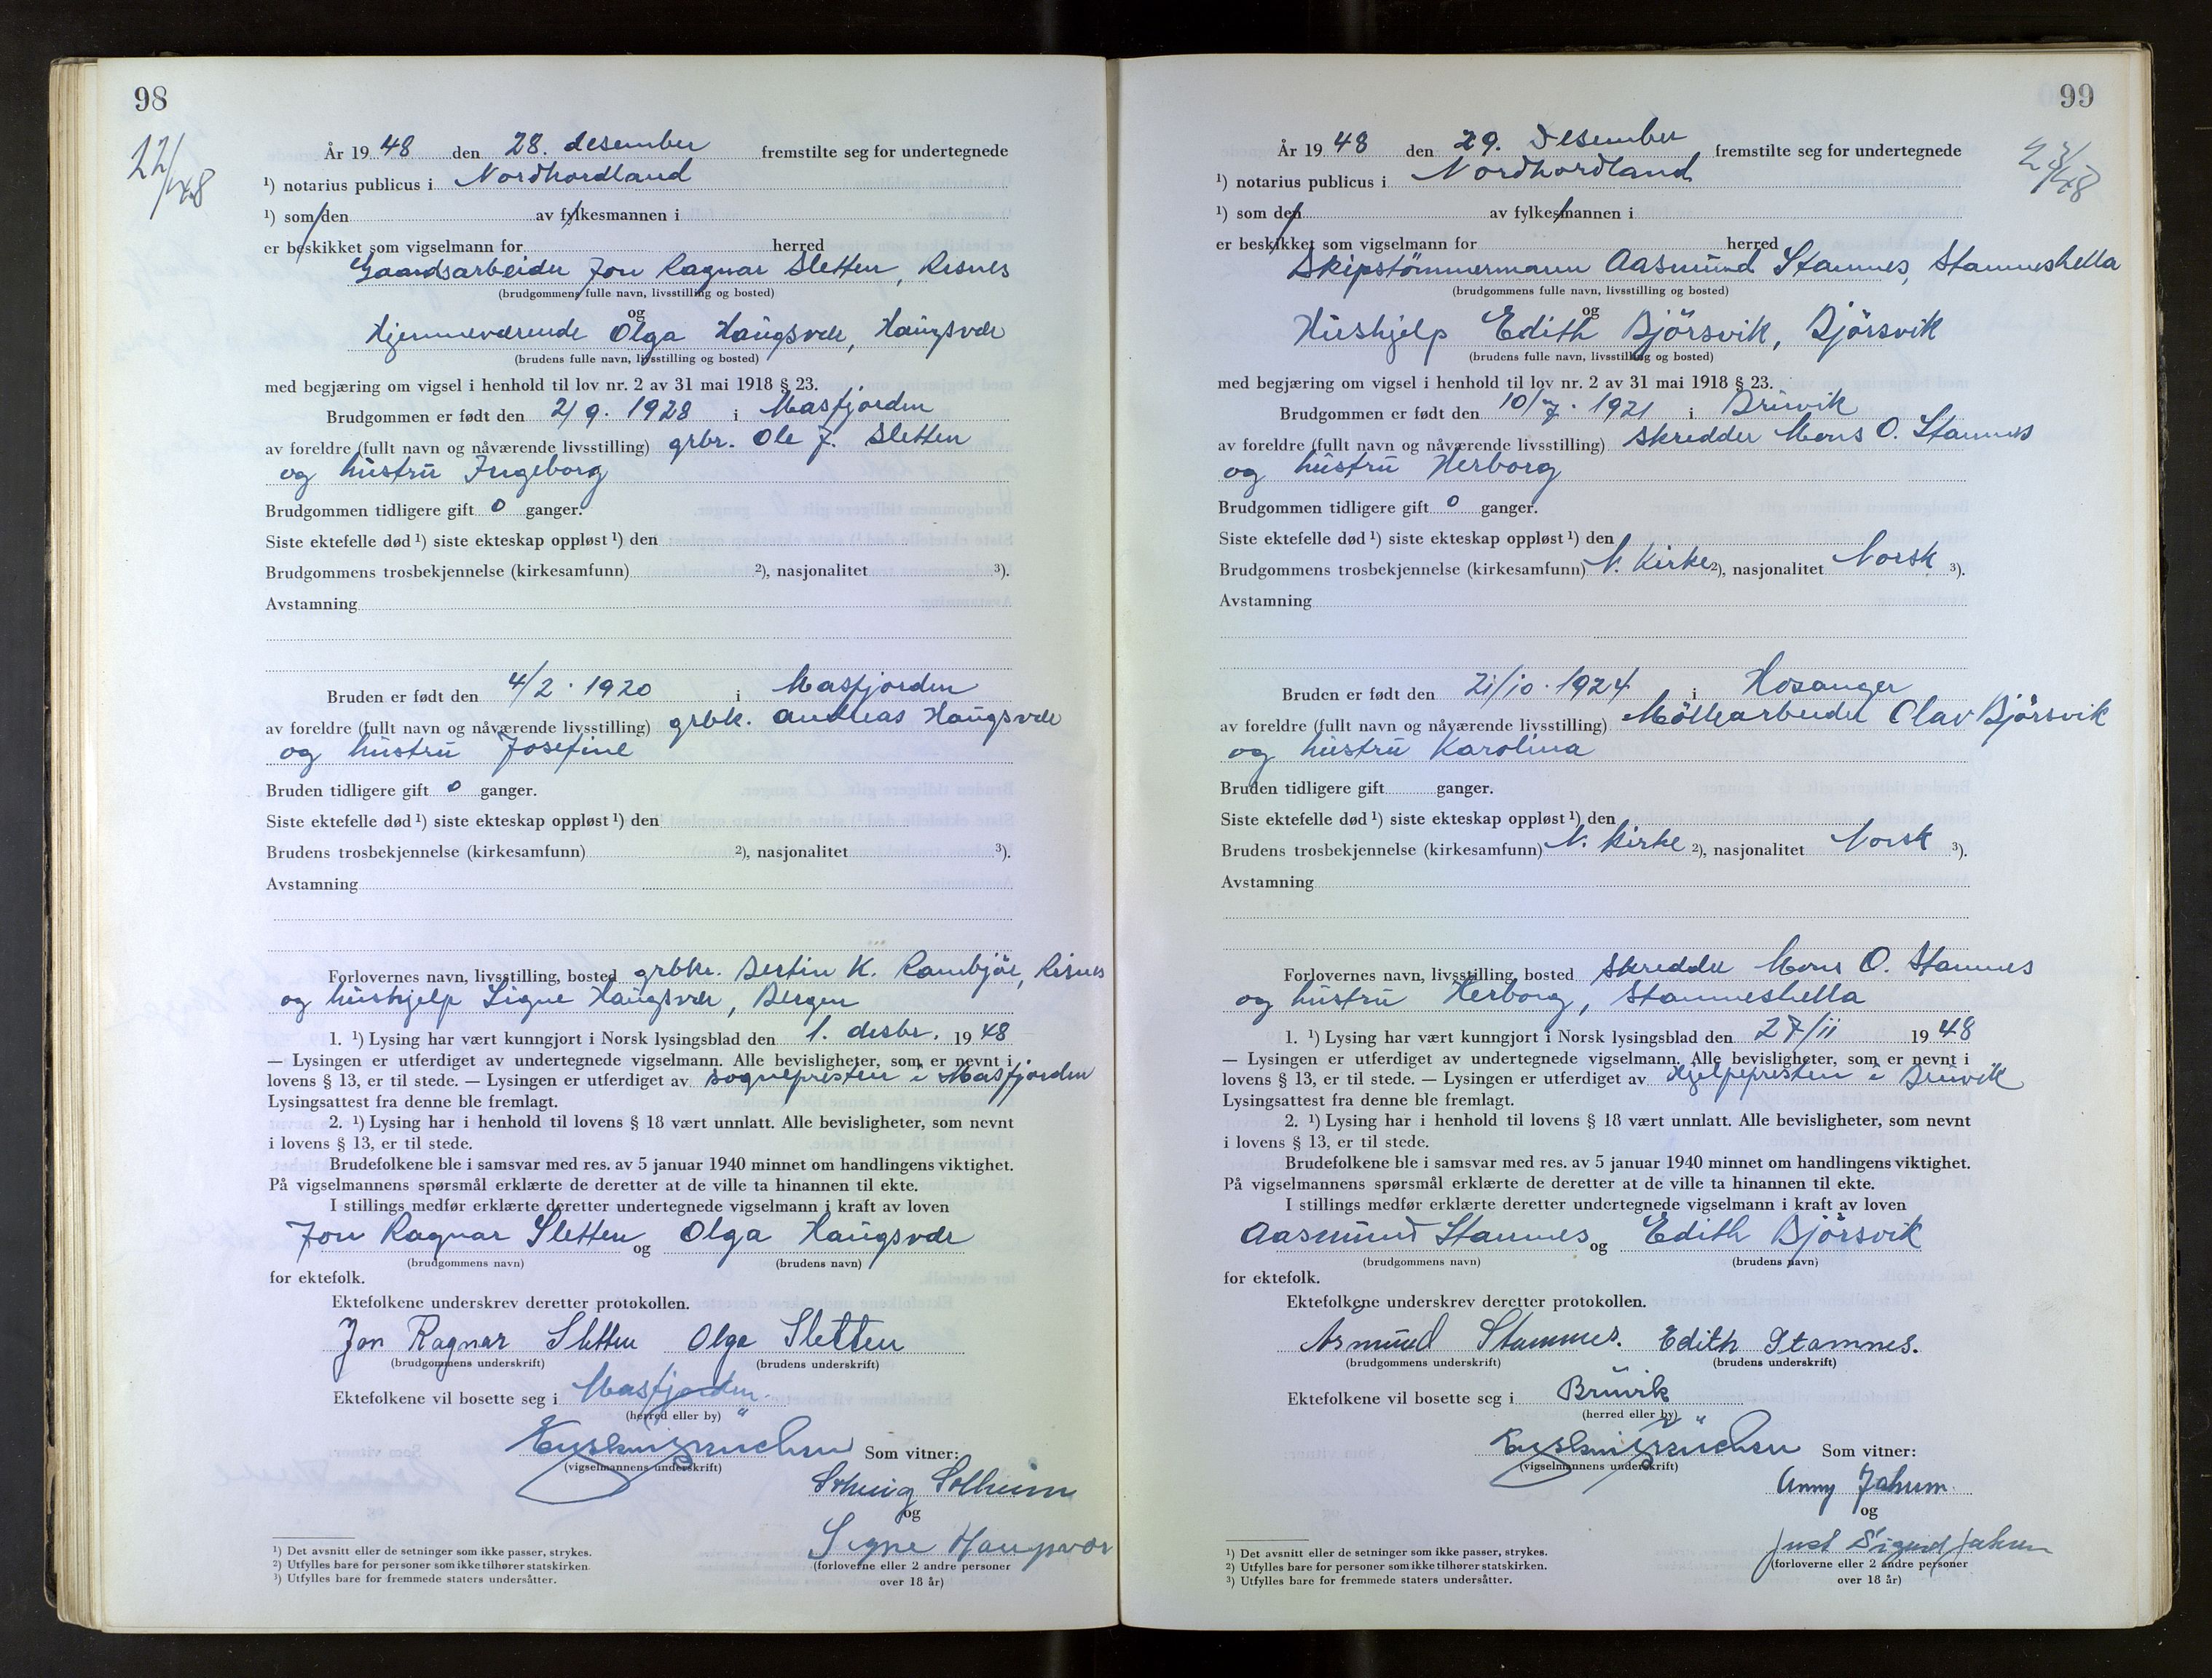 98
22/48
År 19 48 den 28. desember fremstilte seg for undertegnede
¹) notarius publicus i Nordhordland
¹) som den av fylkesmannen i
er beskikket som vigselmann for herred
Gaardsarbeider Jon Ragnar Sletten, Risnes
(brudgommens fulle navn, livsstilling og bosted)
og
Hjemmeværende Olga Haugsvær, Haugsvær
(brudens fulle navn, livsstilling og bosted)
med begjæring om vigsel i henhold til lov nr. 2 av 31 mai 1918 § 23.
Brudgommen er født den 2/9. 1928 i Masfjorden
av foreldre (fullt navn og nåværende livsstilling) grbr. Ole J. Sletten
og hustru Ingeborg
Brudgommen tidligere gift 0 ganger.
Siste ektefelle død ¹) siste ekteskap oppløst ¹) den
Brudgommens trosbekjennelse (kirkesamfunn) ²), nasjonalitet ³).
Avstamning
Bruden er født den 4/2. 1920 i Masfjorden
av foreldre (fullt navn og nåværende livsstilling) grbk. Andreas Haugsvær
og hustru Josefine
Bruden tidligere gift 0 ganger.
Siste ektefelle død ¹) siste ekteskap oppløst ¹) den
Brudens trosbekjennelse (kirkesamfunn) ²), nasjonalitet ³).
Avstamning
Forlovernes navn, livsstilling, bosted grbkr. Bertin K. Rambjør, Risnes
og hushjelp Signe Haugsvær, Bergen
1. ¹) Lysing har vært kunngjort i Norsk lysingsblad den 1. desbr. 19 48
— Lysingen er utferdiget av undertegnede vigselmann. Alle bevisligheter, som er nevnt i
lovens § 13, er til stede. — Lysingen er utferdiget av sognepresten i Masfjorden
Lysingsattest fra denne ble fremlagt.
2. ¹) Lysing har i henhold til lovens § 18 vært unnlatt. Alle bevisligheter, som nevnt
i lovens § 13, er til stede.
Brudefolkene ble i samsvar med res. av 5 januar 1940 minnet om handlingens viktighet.
På vigselmannens spørsmål erklærte de deretter at de ville ta hinannen til ekte.
I stillings medfør erklærte deretter undertegnede vigselmann i kraft av loven
Jon Ragnar Sletten og Olga Haugsvær
(brudgommens navn) (brudens navn)
for ektefolk.
Ektefolkene underskrev deretter protokollen.
Jon Ragnar Sletten Olga Sletten
(brudgommens underskrift) (brudens underskrift)
Ektefolkene vil bosette seg i Masfjorden.
(herred eller by)
Som vitner:
(vigselmannens underskrift)
Solveig Solheim
og
Signe Haugsvær
(forloverne eller 2 andre personer
over 18 år)
¹) Det avsnitt eller de setninger som ikke passer, strykes.
²) Utfylles bare for personer som ikke tilhører statskirken.
³) Utfylles bare for fremmede staters undersåtter.
99
23/48
År 19 48 den 29. Desember fremstilte seg for undertegnede
¹) notarius publicus i Nordhordland
¹) som den av fylkesmannen i
er beskikket som vigselmann for herred
Skipstömmermann Aasmund Stamnes, Stamneshella
(brudgommens fulle navn, livsstilling og bosted)
og
Hushjelp Edith Björsvik, Björsvik
(brudens fulle navn, livsstilling og bosted)
med begjæring om vigsel i henhold til lov nr. 2 av 31 mai 1918 § 23.
Brudgommen er født den 10/7. 1921 i Bruvik
av foreldre (fullt navn og nåværende livsstilling) skredder Mons O. Stamnes
og hustru Herborg
Brudgommen tidligere gift 0 ganger.
Siste ektefelle død ¹) siste ekteskap oppløst ¹) den
Brudgommens trosbekjennelse (kirkesamfunn) N. Kirke ²), nasjonalitet Norsk ³).
Avstamning
Bruden er født den 21/10. 1924 i Hosanger
av foreldre (fullt navn og nåværende livsstilling) Möllearbeider Olav Björsvik
og hustru Karolina
Bruden tidligere gift ganger.
Siste ektefelle død ¹) siste ekteskap oppløst ¹) den
Brudens trosbekjennelse (kirkesamfunn) N. Kirke ²), nasjonalitet Norsk ³).
Avstamning
Forlovernes navn, livsstilling, bosted skredder Mons O. Stamnes
og hustru Herborg, Stamneshella
1. ¹) Lysing har vært kunngjort i Norsk lysingsblad den 27/11 19 48
— Lysingen er utferdiget av undertegnede vigselmann. Alle bevisligheter, som er nevnt i
lovens § 13, er til stede. — Lysingen er utferdiget av Hjelpepresten i Bruvik
Lysingsattest fra denne ble fremlagt.
2. ¹) Lysing har i henhold til lovens § 18 vært unnlatt. Alle bevisligheter, som nevnt
i lovens § 13, er til stede.
Brudefolkene ble i samsvar med res. av 5 januar 1940 minnet om handlingens viktighet.
På vigselmannens spørsmål erklærte de deretter at de ville ta hinannen til ekte.
I stillings medfør erklærte deretter undertegnede vigselmann i kraft av loven
Aasmund Stamnes og Edith Björsvik
(brudgommens navn) (brudens navn)
for ektefolk.
Ektefolkene underskrev deretter protokollen.
Åsmund Stamnes. Edith Stamnes.
(brudgommens underskrift) (brudens underskrift)
Ektefolkene vil bosette seg i Bruvik
(herred eller by)
Som vitner:
(vigselmannens underskrift)
Anny Jahrum.
og
Just Sigurd
(forloverne eller 2 andre personer
over 18 år)
¹) Det avsnitt eller de setninger som ikke passer, strykes.
²) Utfylles bare for personer som ikke tilhører statskirken.
³) Utfylles bare for fremmede staters undersåtter.